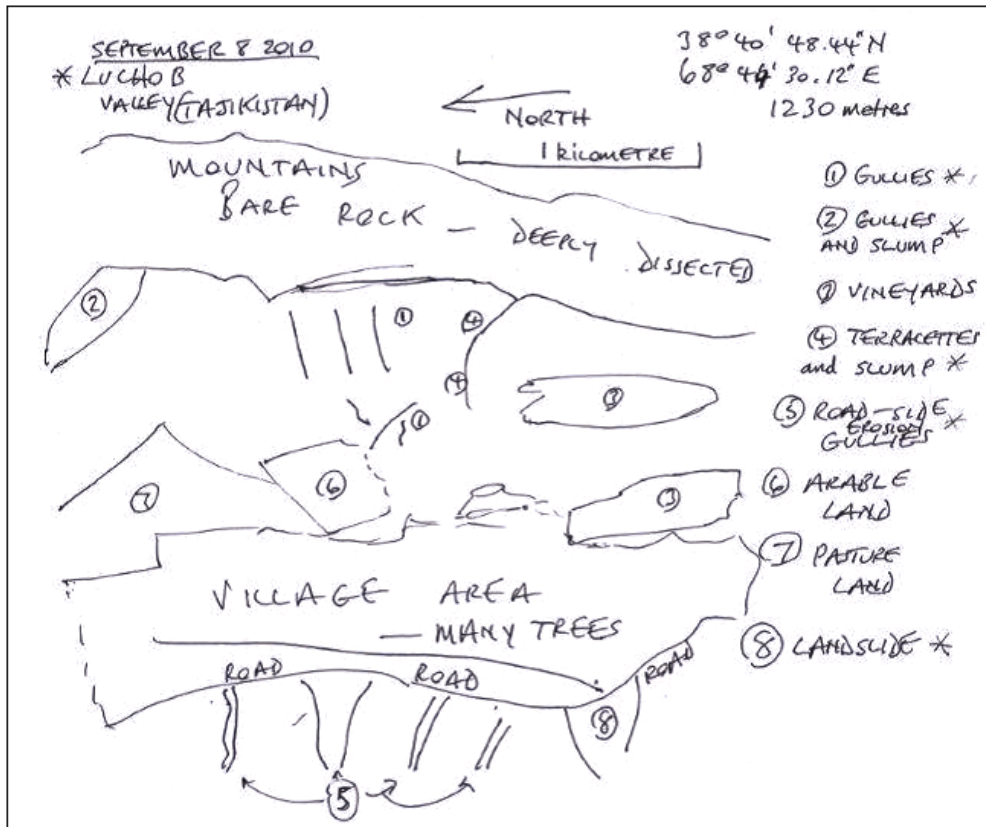 SEPTEMBER 8 2010
* LUCHOB
VALLEY (TAJIKISTAN)
38° 40' 48.44" N
68° 44' 30.12" E
1230 metres
NORTH
1 kilometre
MOUNTAINS
BARE ROCK — DEEPLY DISSECTED
① GULLIES *
② GULLIES
AND SLUMP *
③ VINEYARDS
④ TERRACETTES
and SLUMP *
⑤ ROAD-SIDE
EROSION
GULLIES *
⑥ ARABLE
LAND
⑦ PASTURE
LAND
⑧ LANDSLIDE *
②
①
④
④
③
①
⑦
⑥
③
VILLAGE AREA
— MANY TREES
ROAD
ROAD
ROAD
⑧
⑤